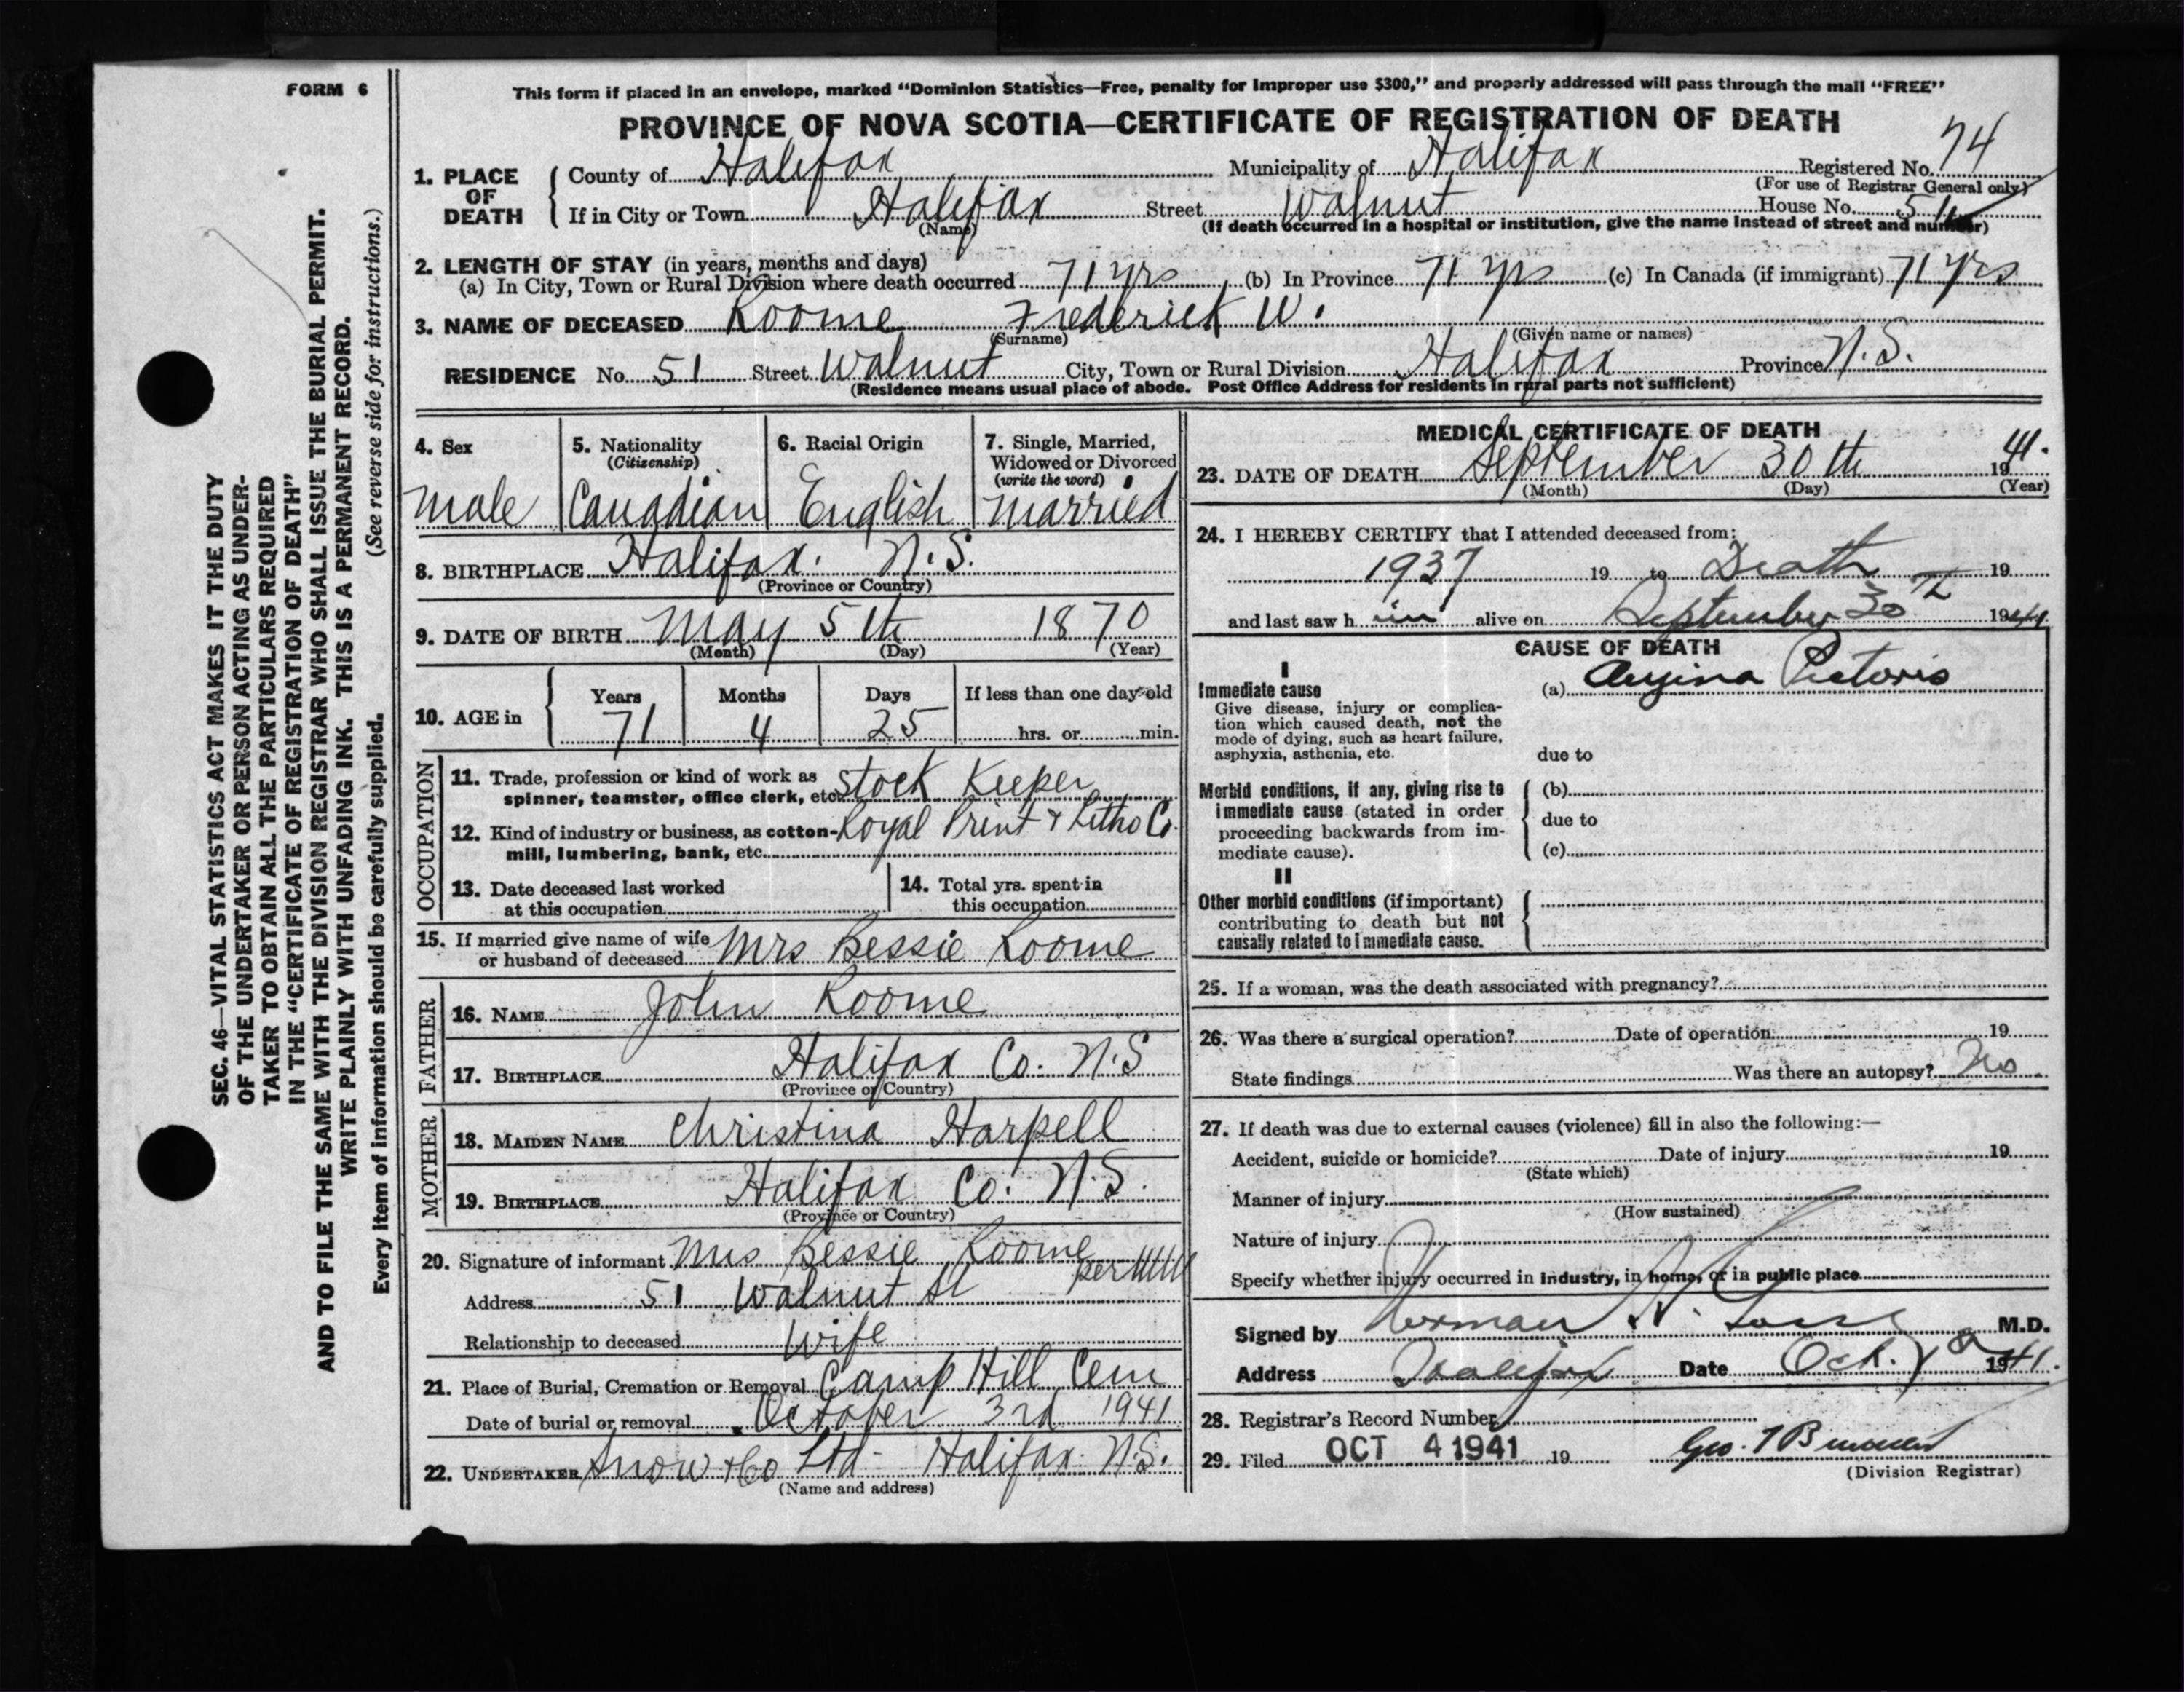 FORM 6
This form if placed in an envelope, marked "Dominion Statistics—Free, penalty for improper use $300," and properly addressed will pass through the mail "FREE"
PROVINCE OF NOVA SCOTIA—CERTIFICATE OF REGISTRATION OF DEATH
1. PLACE OF DEATH County of Halifax Municipality of Halifax Registered No. 74
(For use of Registrar General only)
If in City or Town Halifax Street Walnut House No. 51
(Name) (If death occurred in a hospital or institution, give the name instead of street and number)
2. LENGTH OF STAY (in years, months and days)
(a) In City, Town or Rural Division where death occurred 71 yrs (b) In Province 71 yrs (c) In Canada (if immigrant) 71 yrs
3. NAME OF DECEASED Roome Frederick W.
(Surname) (Given name or names)
RESIDENCE No. 51 Street Walnut City, Town or Rural Division Halifax Province N.S.
(Residence means usual place of abode. Post Office Address for residents in rural parts not sufficient)
4. Sex
male
5. Nationality
(Citizenship)
Canadian
6. Racial Origin
English
7. Single, Married,
Widowed or Divorced
(write the word)
married
8. BIRTHPLACE Halifax. N.S.
(Province or Country)
9. DATE OF BIRTH May 5th 1870
(Month) (Day) (Year)
10. AGE in
Years Months Days If less than one day old
71 4 25 hrs. or min.
OCCUPATION
11. Trade, profession or kind of work as
spinner, teamster, office clerk, etc. Stock Keeper
12. Kind of industry or business, as cotton-
mill, lumbering, bank, etc. Royal Print & Litho Co.
13. Date deceased last worked
at this occupation
14. Total yrs. spent in
this occupation
15. If married give name of wife
or husband of deceased Mrs Bessie Roome
FATHER
16. NAME John Roome
17. BIRTHPLACE Halifax Co. N.S
(Province or Country)
MOTHER
18. MAIDEN NAME Christina Harpell
19. BIRTHPLACE Halifax Co. N.S.
(Province or Country)
20. Signature of informant Mrs Bessie Roome
per
Address 51 Walnut St
Relationship to deceased Wife
21. Place of Burial, Cremation or Removal Camp Hill Cem
Date of burial or removal October 3rd 1941
22. UNDERTAKER Snow & Co Ltd - Halifax N.S.
(Name and address)
MEDICAL CERTIFICATE OF DEATH
23. DATE OF DEATH September 30th 1941.
(Month) (Day) (Year)
24. I HEREBY CERTIFY that I attended deceased from:
1937 19 to Death 19
and last saw h im alive on September 30th 1941
CAUSE OF DEATH
I
Immediate cause
Give disease, injury or complica-
tion which caused death, not the
mode of dying, such as heart failure,
asphyxia, asthenia, etc.
(a) Angina Pectoris
due to
Morbid conditions, if any, giving rise to
immediate cause (stated in order
proceeding backwards from im-
mediate cause).
(b)
due to
(c)
II
Other morbid conditions (if important)
contributing to death but not
causally related to immediate cause.
25. If a woman, was the death associated with pregnancy?
26. Was there a surgical operation? Date of operation 19
State findings Was there an autopsy? No
27. If death was due to external causes (violence) fill in also the following:—
Accident, suicide or homicide? Date of injury 19
(State which)
Manner of injury
(How sustained)
Nature of injury
Specify whether injury occurred in industry, in home, or in public place
Signed by Norman H. M.D.
Address Halifax Date Oct. 1941.
28. Registrar's Record Number
29. Filed OCT 4 1941 19 Geo. T
(Division Registrar)
SEC. 46—VITAL STATISTICS ACT MAKES IT THE DUTY
OF THE UNDERTAKER OR PERSON ACTING AS UNDER-
TAKER TO OBTAIN ALL THE PARTICULARS REQUIRED
IN THE "CERTIFICATE OF REGISTRATION OF DEATH"
AND TO FILE THE SAME WITH THE DIVISION REGISTRAR WHO SHALL ISSUE THE BURIAL PERMIT.
WRITE PLAINLY WITH UNFADING INK. THIS IS A PERMANENT RECORD.
Every item of information should be carefully supplied. (See reverse side for instructions.)